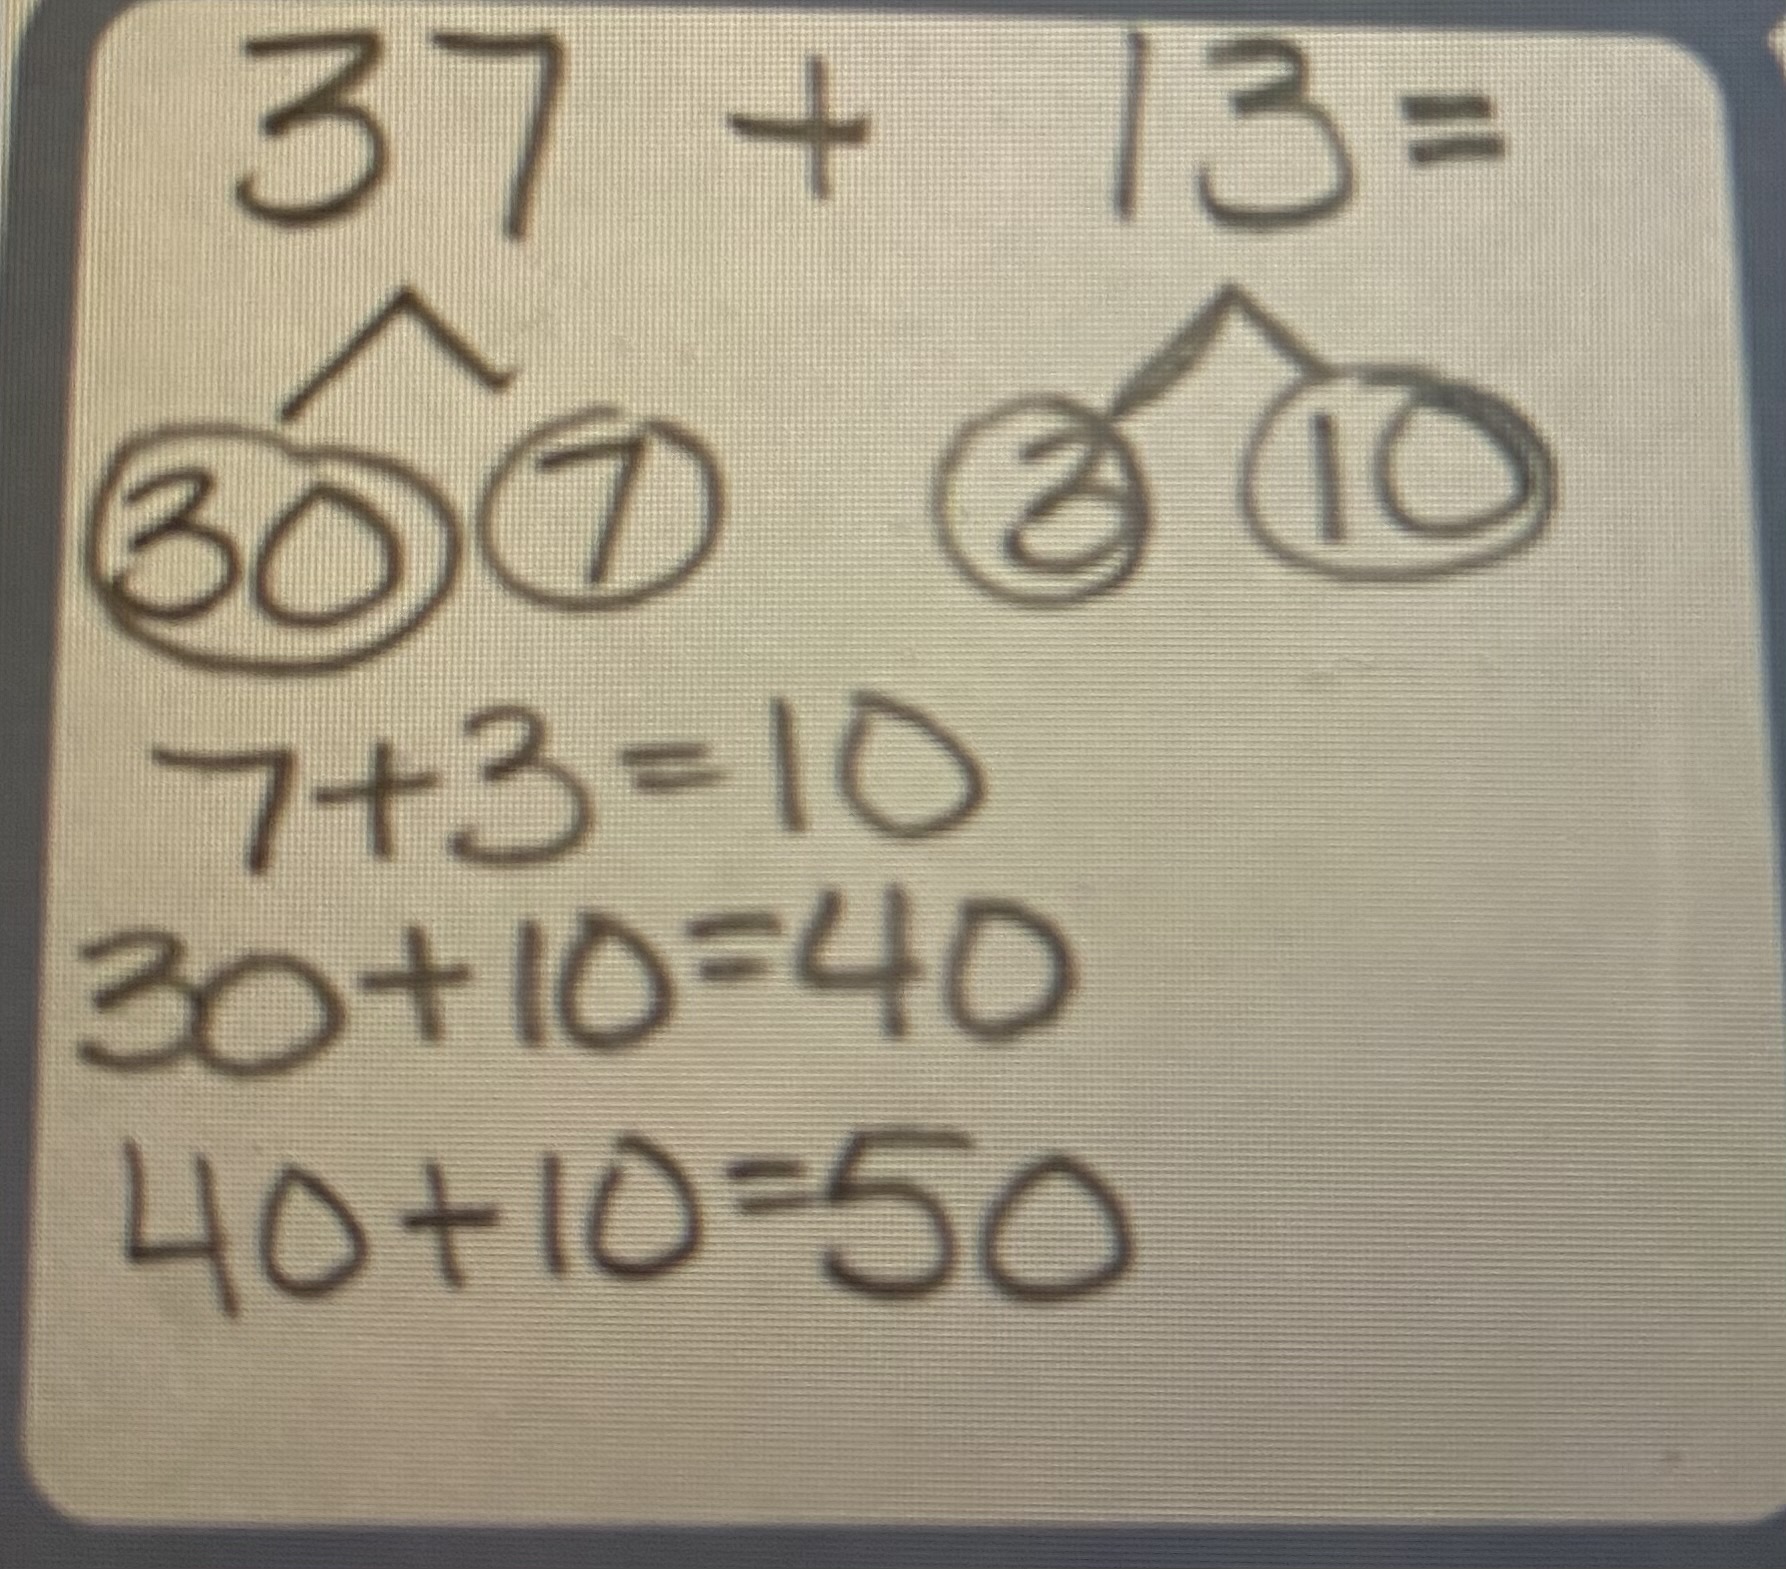 37 + 13 =
30 7 3 10
7+3=10
30+10=40
40+10=50